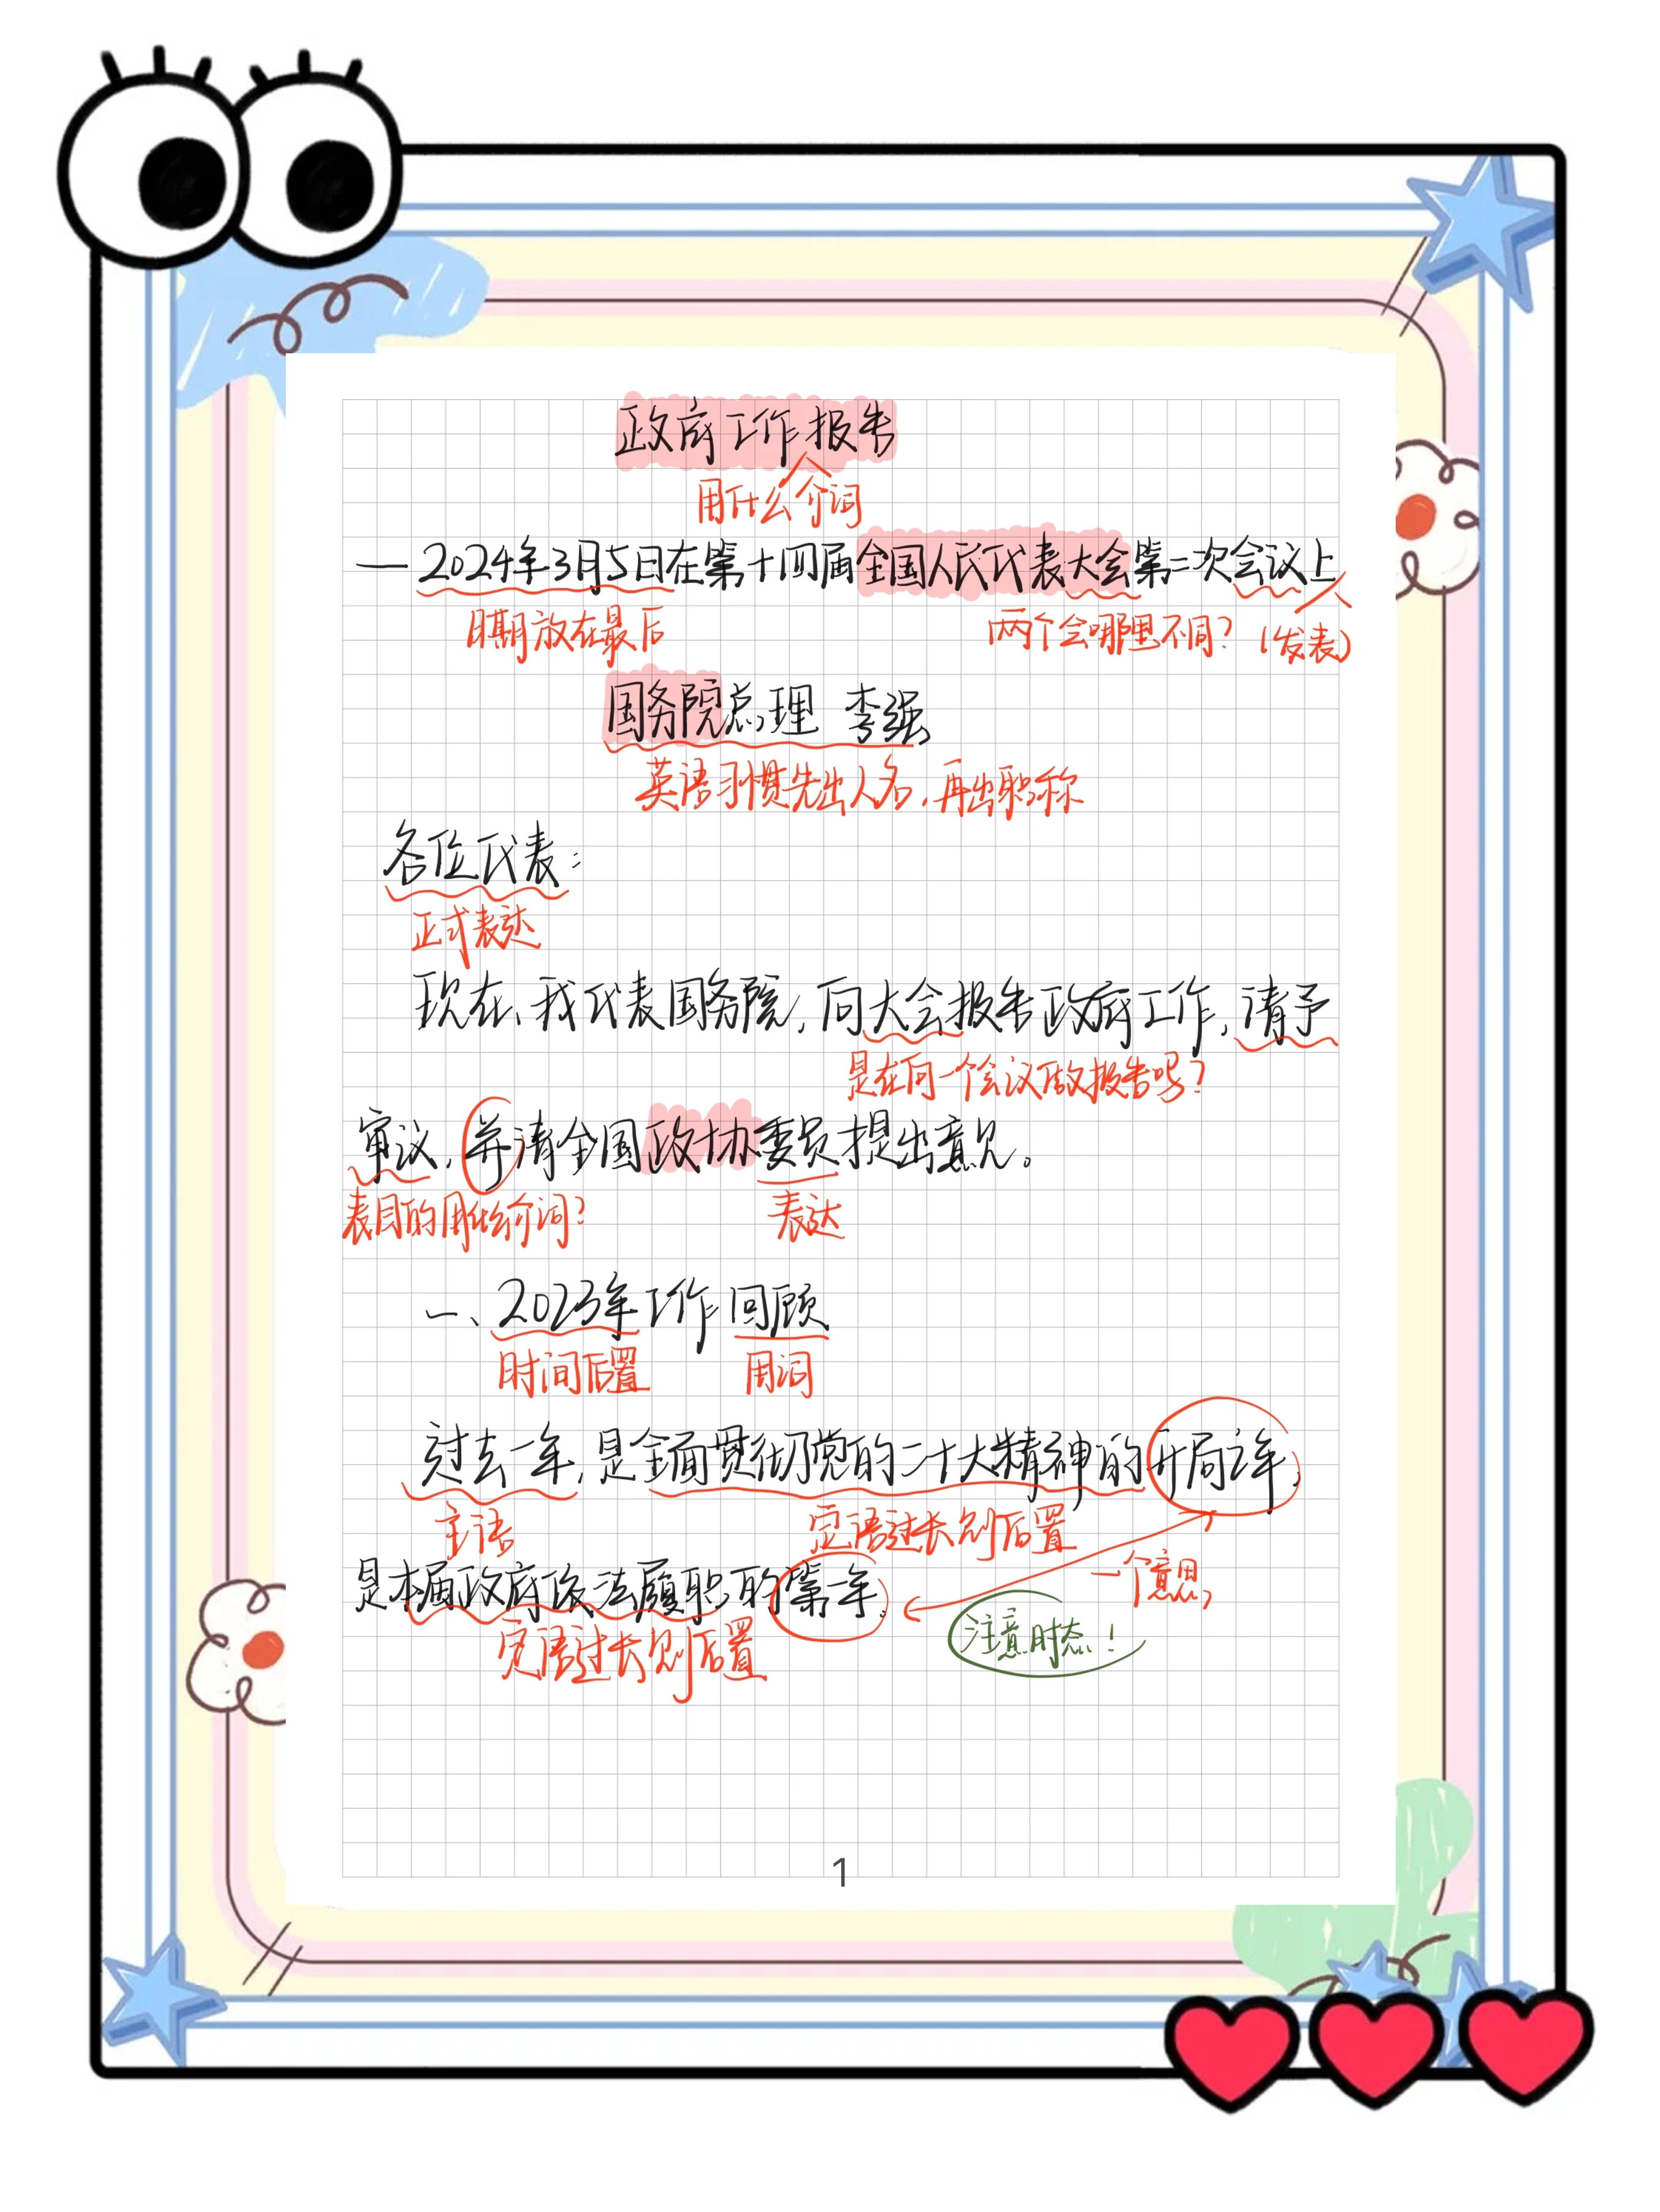 政府工作报告
用什么介词
—2024年3月5日在第十四届全国人民代表大会第二次会议上
日期放在最后
两个会哪里不同？（发表）
国务院总理 李强
英语习惯先出人名，再出职称
各位代表：
正式表达
现在，我代表国务院，向大会报告政府工作，请予
是在向一个会议做报告吗？
审议，并请全国政协委员提出意见。
表目的用什么介词？
表达
一、2023年工作回顾
时间后置
用词
过去一年，是全面贯彻党的二十大精神的开局之年，
主语
定语过长则后置
一个意思，
是本届政府依法履职的第一年。
定语过长则后置
注意时态！
1